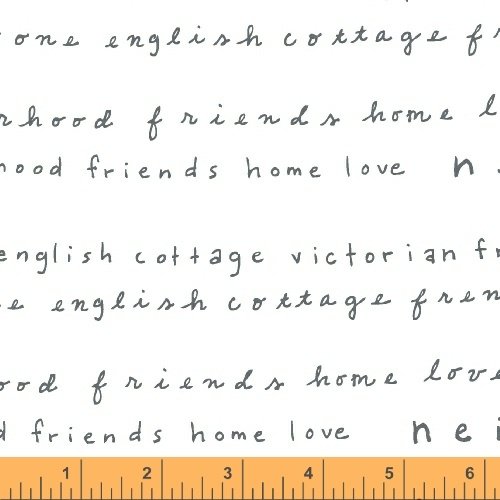 one english cottage fr
rhood friends home l
hood friends home love n
english cottage victorian fr
e english cottage fren
ood friends home love
d friends home love nei
1 2 3 4 5 6